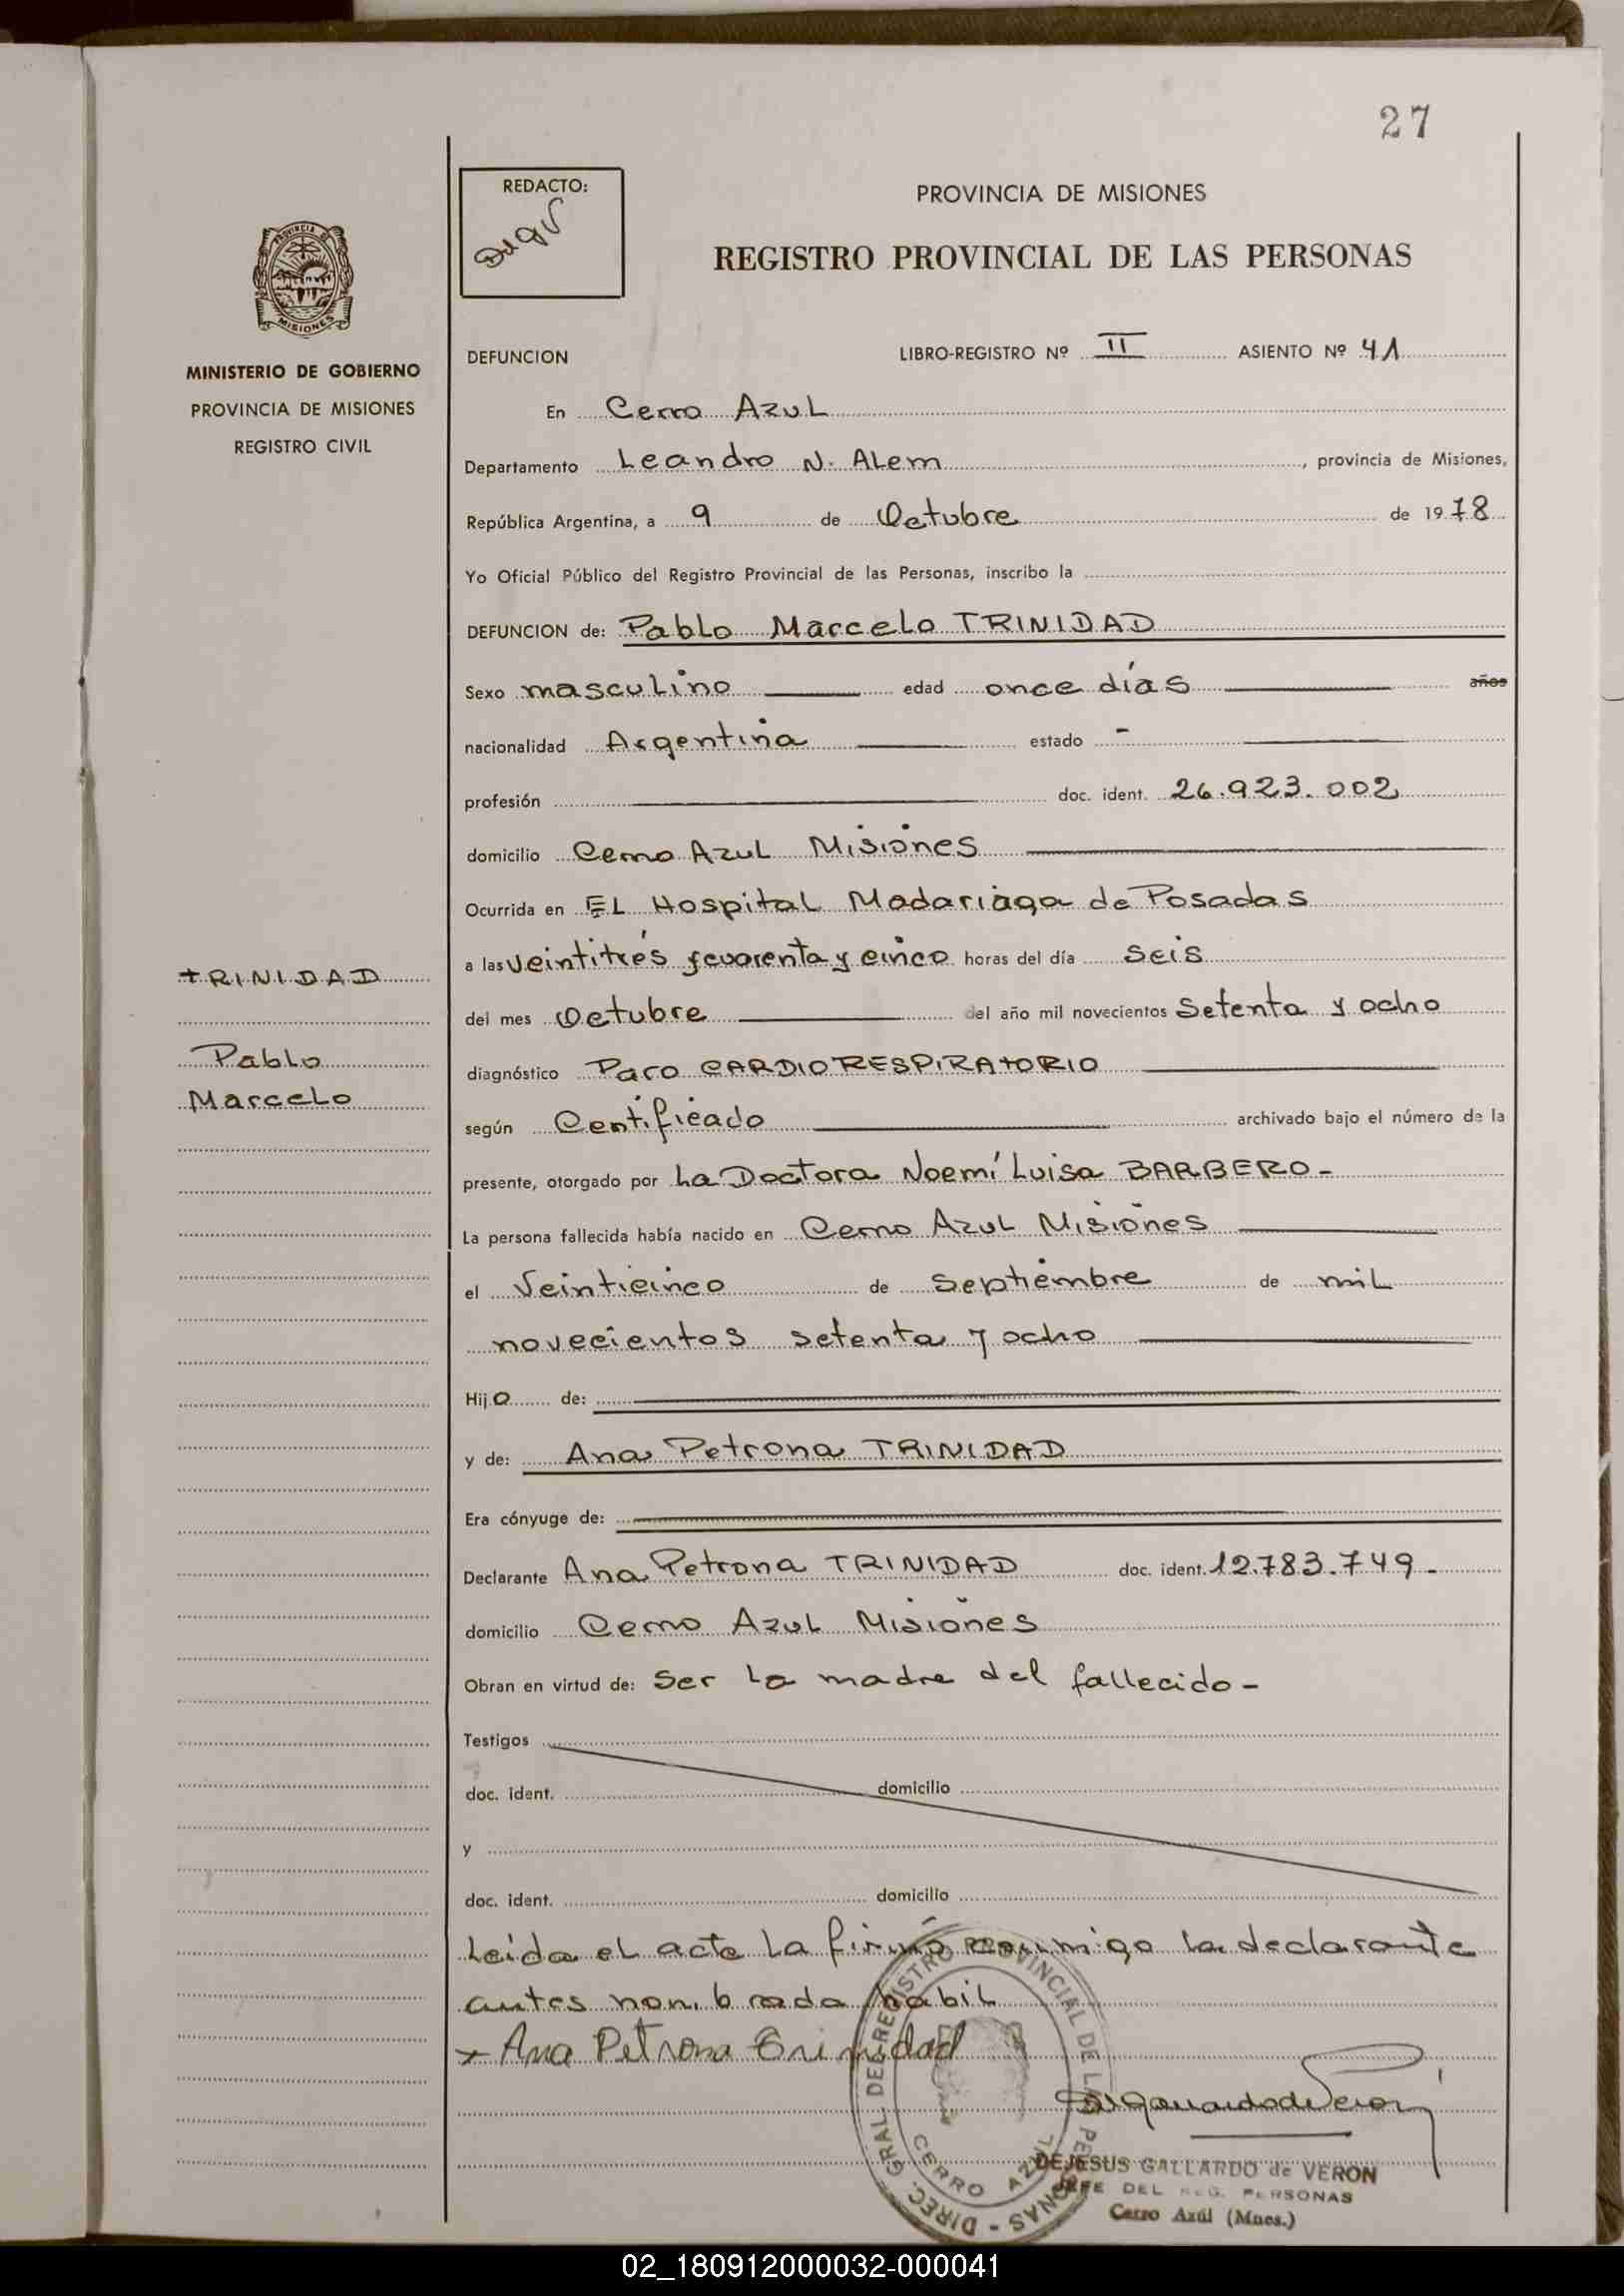 27
REDACTO:
PROVINCIA DE MISIONES
REGISTRO PROVINCIAL DE LAS PERSONAS
PROVINCIA DE
MISIONES
MINISTERIO DE GOBIERNO
PROVINCIA DE MISIONES
REGISTRO CIVIL
DEFUNCION LIBRO-REGISTRO Nº II ASIENTO Nº 41
En Cerro Azul
Departamento Leandro N. Alem, provincia de Misiones,
República Argentina, a 9 de Octubre de 1978
Yo Oficial Público del Registro Provincial de las Personas, inscribo la
DEFUNCION de: Pablo Marcelo TRINIDAD
Sexo masculino edad once días años
nacionalidad Argentina estado -
profesión doc. ident. 26.923.002
domicilio Cerro Azul Misiones
Ocurrida en EL Hospital Madariaga de Posadas
a las veintitrés y cuarenta y cinco horas del día seis
del mes Octubre del año mil novecientos setenta y ocho
diagnóstico Paro CARDIORESPIRATORIO
según Certificado archivado bajo el número de la
presente, otorgado por La Doctora Noemí Luisa BARBERO-
La persona fallecida había nacido en Cerro Azul Misiones
el Veinticinco de Septiembre de mil
novecientos setenta y ocho
Hijo de:
y de: Ana Petrona TRINIDAD
Era cónyuge de:
Declarante Ana Petrona TRINIDAD doc. ident. 12.783.749-
domicilio Cerro Azul Misiones
Obran en virtud de: Ser la madre del fallecido-
Testigos
doc. ident. domicilio
y
doc. ident. domicilio
Leída el acta la firmó conmigo la declarante
antes nombrada hábil
x Ana Petrona Trinidad
TRINIDAD
Pablo
Marcelo
DIREC. GRAL. DEL REGISTRO PROVINCIAL DE LAS PERSONAS -
CERRO AZUL
DEJESUS GALLARDO de VERON
JEFE DEL REG. PERSONAS
Cerro Azúl (Mnes.)
02_180912000032-000041